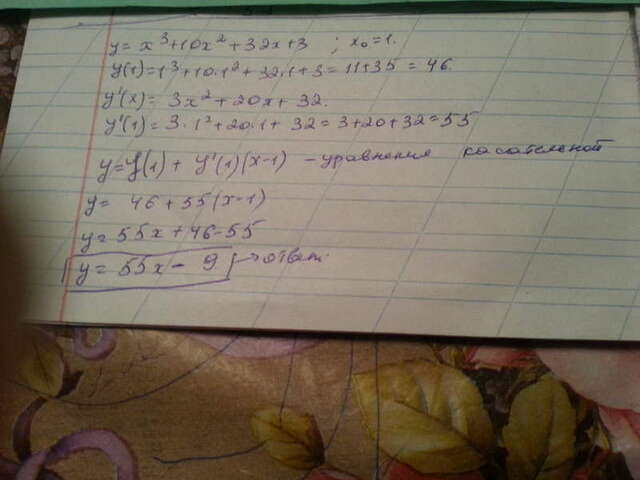 y = x³+10x²+32x+3 ; x₀=1.
y(1)=1³+10·1²+32·1+3=11+35=46.
y'(x)= 3x²+20x+32.
y'(1)=3·1²+20·1+32=3+20+32=55
y=y(1)+y'(1)(x-1) - уравнения касательной
y= 46+55(x-1)
y=55x+46-55
y=55x-9 → ответ.